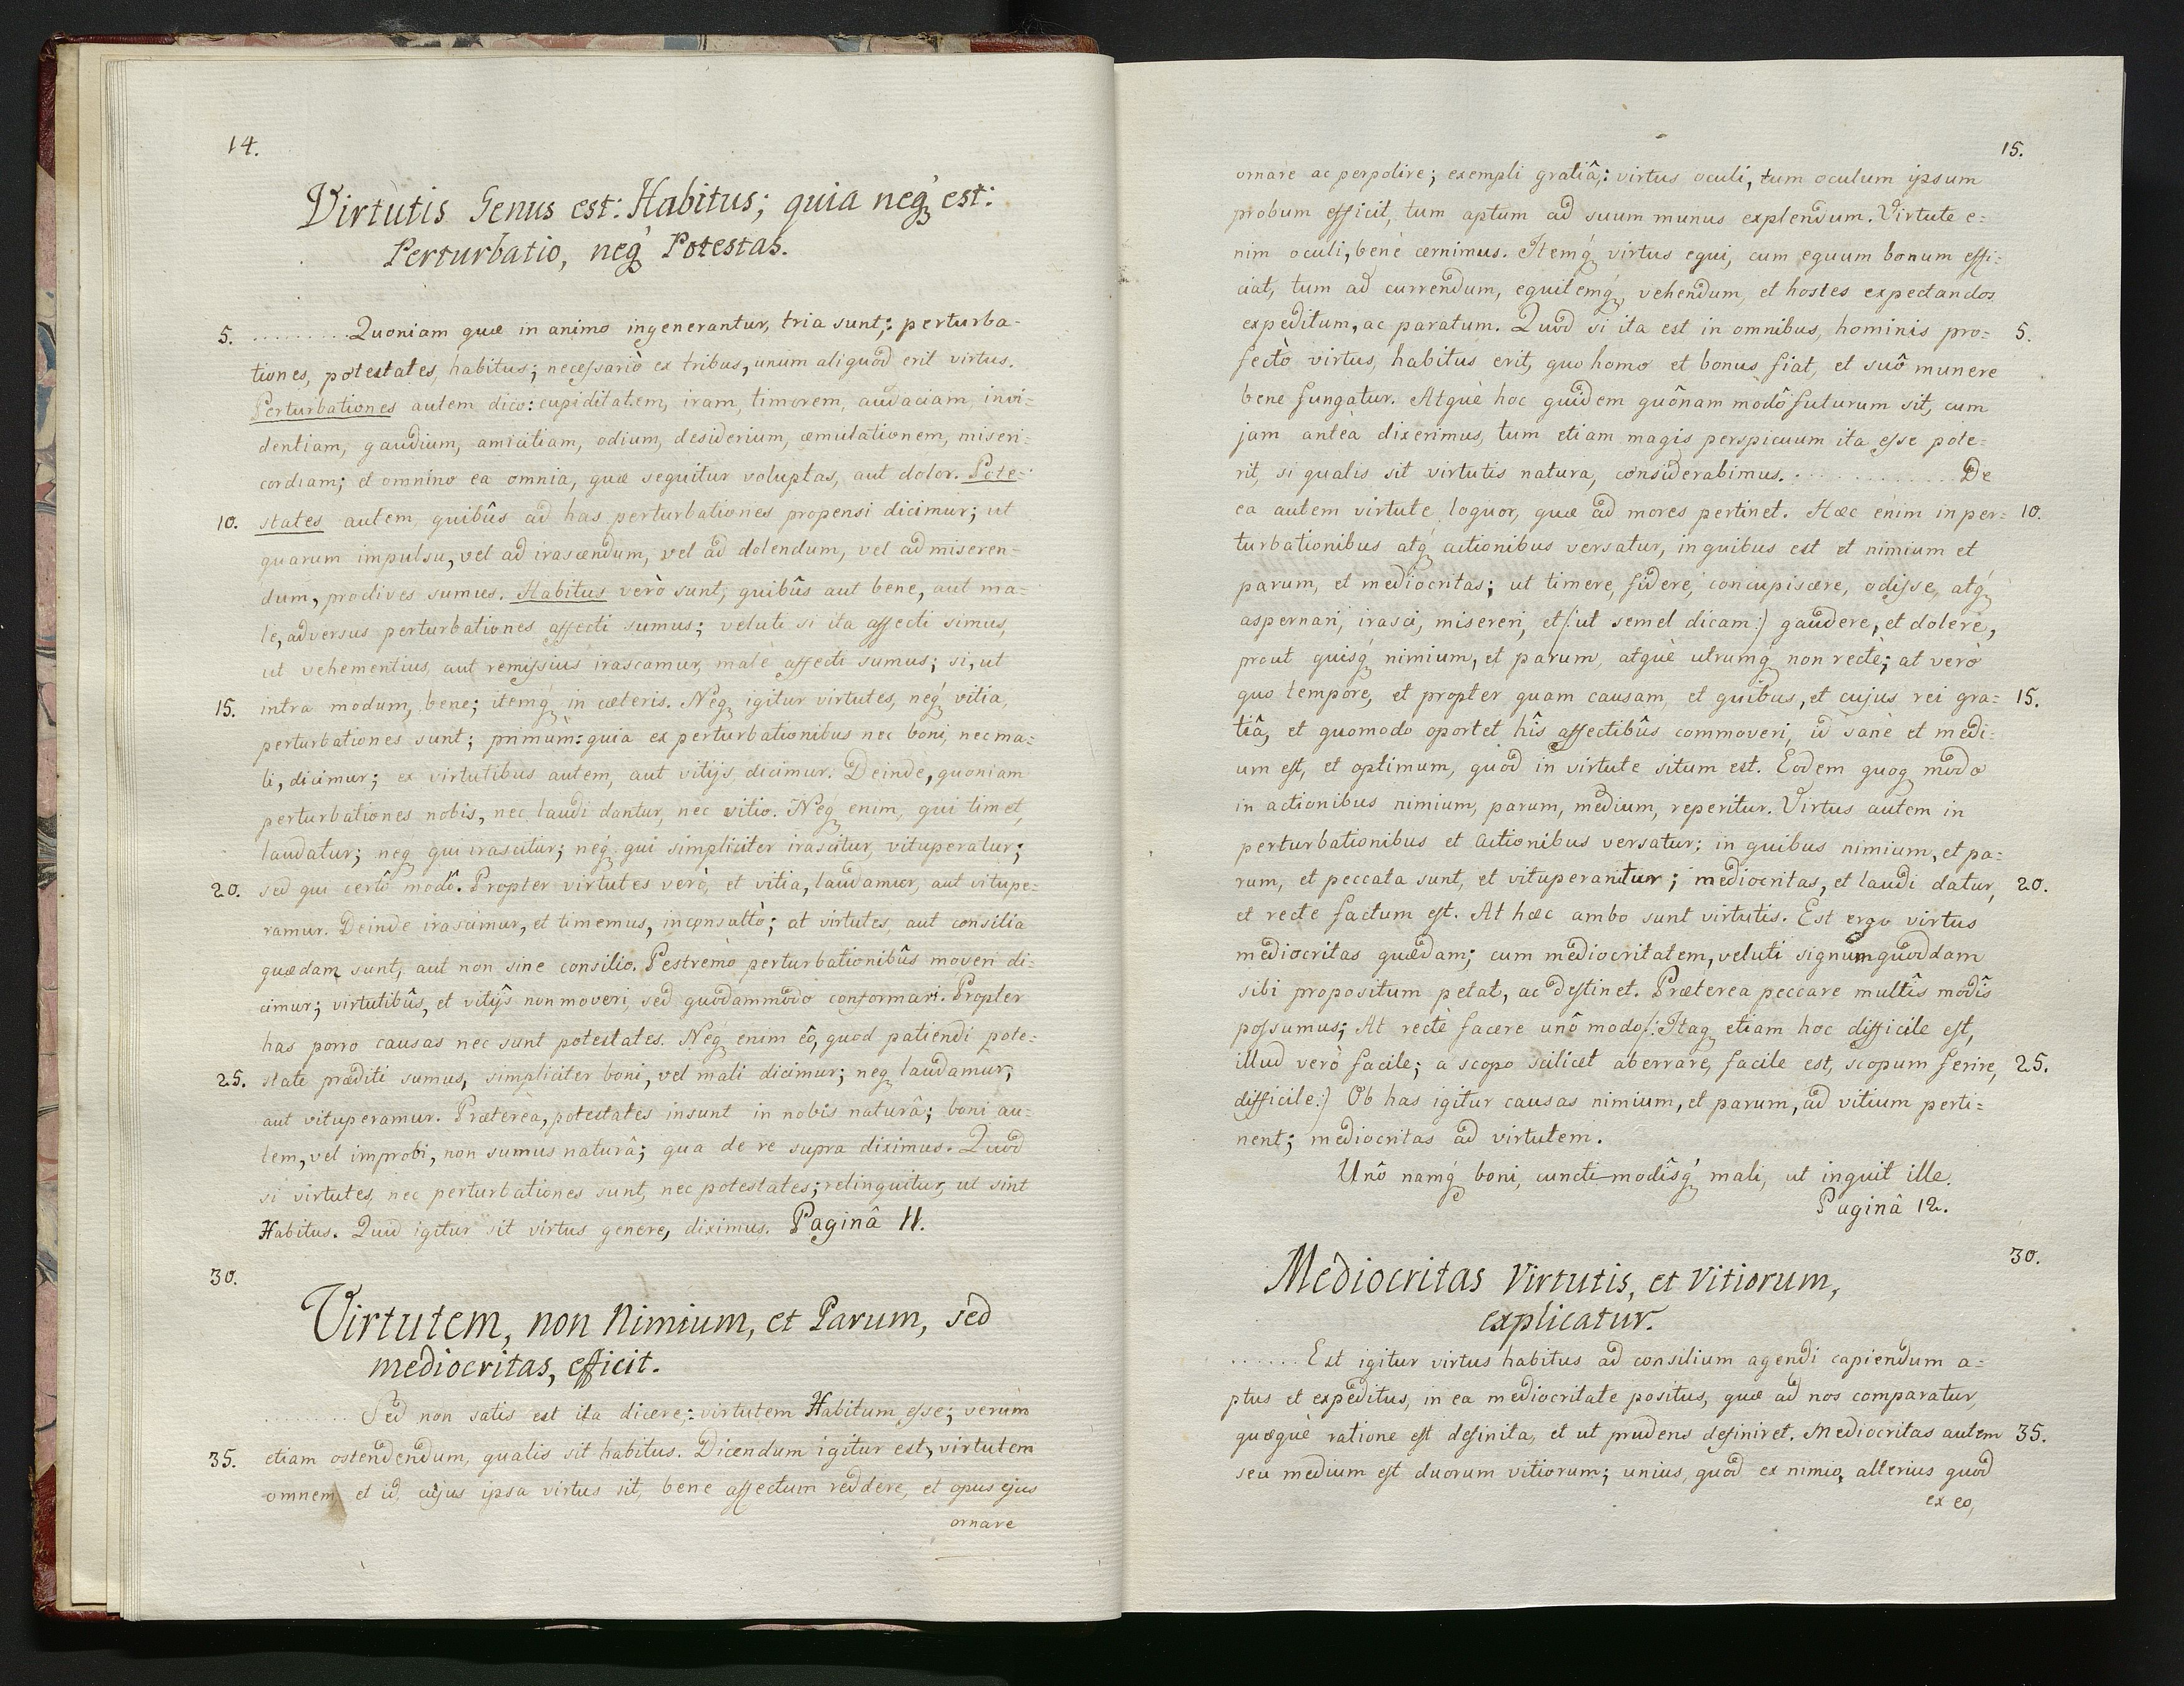 14.
Virtutis Genus est: Habitus; quia neq́ꝫ est:
Perturbatio, neq́ꝫ Potestas.
5. ......... Quoniam quæ in animo ingenerantur, tria sunt;: perturba-
tiones, potestates, habitus; necessariò ex tribus, unum aliquod erit virtus.
Perturbationes autem dico: cupiditatem, iram, timorem, audaciam, invi-
dentiam, gaudium, amicitiam, odium, desiderium, æmulationem, miseri-
cordiam; et omnino ea omnia, quæ sequitur voluptas, aut dolor. Pote-
10. states autem, quibûs ad has perturbationes propensi dicimur; ut
quarum impulsu, vel ad irascendum, vel ad dolendum, vel ad miseren-
dum, proclives sumus. Habitus verò sunt, quibûs aut bene, aut ma-
le, adversus perturbationes affecti sumus; veluti si ita affecti simus,
ut vehementius, aut remissius irascamur, malè affecti sumus; si, ut
15. intra modum, bene; itemq́ꝫ in cæteris. Neqꝫ igitur virtutes, neq́ꝫ vitia,
perturbationes sunt; primùm: quia ex perturbationibus nec boni, nec ma-
li, dicimur; ex virtutibus autem, aut vitijs dicimur. Deinde, quoniam
perturbationes nobis, nec laudi dantur, nec vitio. Neq́ꝫ enim, qui timet,
laudatur; neqꝫ qui irascitur; neq́ꝫ qui simpliciter irascitur, vituperatur;
20. sed qui certô modô. Propter virtutes verò, et vitia, laudamur, aut vitupe-
ramur. Deinde irascimur, et timemus, inconsultò; at virtutes, aut consilia
quædam sunt, aut non sine consilio. Postremò perturbationibûs moveri di-
cimur; virtutibûs, et vitijs non moveri, sed quodammodo conformari. Propter
has porro causas nec sunt potestates. Neq́ꝫ enim eô, quod patiendi pote-
25. state præditi sumus, simpliciter boni, vel mali dicimur; neqꝫ laudamur,
aut vituperamur. Præterèa, potestates insunt in nobis naturâ; boni au-
tem, vel improbi, non sumus naturâ; qua de re supra diximus. Quòd
si virtutes, nec perturbationes sunt, nec potestates; relinquitur, ut sint
Habitus. Quid igitur sit virtus genere, diximus. Paginâ 11.
30.
Virtutem, non Nimium, et Parum, sed
mediocritas, efficit.
......... Sed non satis est ita dicere;: virtutem Habitum esse; verùm
35. etiam ostendendum, qualis sit habitus. Dicendum igitur est, virtutem
omnem, et id, cujus ipsa virtus sit, bene affectum reddere, et opus ejus
ornare
15.
ornare ac perpolire; exempli gratiâ,: virtus oculi, tum oculum ipsum
probum efficit, tum aptum ad suum munus explendum. Virtute e-
nim oculi, benè cernimus. Itemq́ꝫ virtus equi, cum equum bonum effi-
ciat, tum ad currendum, equitemq́ꝫ vehendum, et hostes expectandos
expeditum, ac paratum. Quod si ita est in omnibus, hominis pro- 5.
fectò virtus, habitus erit, quo homo et bonus fiat, et suô munere
bene fungatur. Atquè hoc quidem quônam modô futurum sit, cum
jam antèa dixerimus, tum etiam magis perspicuum ita esse pote-
rit, si qualis sit virtutis natura, considerabimus. .............. De
ea autem virtute loquor, quæ ad mores pertinet. Hæc enim in per- 10.
turbationibus atq́ꝫ actionibus versatur, in quibus est et nimium et
parum, et mediocritas; ut timere, fidere, concupiscere, odisse, atq́ꝫ
aspernari, irasci, misereri, et /: ut semel dicam :) gaudere, et dolere,
prout quisq́ꝫ nimium, et parum, atquè utrumq́ꝫ non rectè; at verò
quo tempore, et propter quam causam, et quibus, et cujus rei gra- 15.
tiâ, et quomodo oportet hîs affectibûs commoveri, id sanè et medi-
um est, et optimum, quòd in virtute situm est. Eodem quoqꝫ modo
in actionibus nimium, parum, medium, reperitur. Virtus autem in
perturbationibus et actionibus versatur; in quibus nimium, et pa-
rum, et peccata sunt, et vituperantur; mediocritas, et laudi datur, 20.
et recte factum est. At hæc ambo sunt virtutis. Est ergo virtus
mediocritas quædam; cum mediocritatem, veluti signum quoddam
sibi propositum petat, ac destinet. Præterea peccare multîs modîs
possumus; At rectè facere unô modo /: Itaqꝫ etiam hoc difficile est,
illud verò facile; a scopo scilicet aberrare, facile est, scopum ferire, 25.
difficile :) Ob has igitur causas nimium, et parum, ad vitium perti-
nent; mediocritas ad virtutem.
Unô namq́ꝫ boni, cuncti modîsq́ꝫ mali, ut inquit ille.
Paginâ 12.
30.
Mediocritas Virtutis, et Vitiorum,
explicatur.
....... Est igitur virtus habitus ad consilium agendi capiendum a-
ptus et expeditus, in ea mediocritate positus, quæ ad nos comparatur,
quæquè ratione est definita, et ut prudens definiret. Mediocritas autem 35.
seu medium est duorum vitiorum; unius, quòd ex nimio, alterius quod
ex eo,